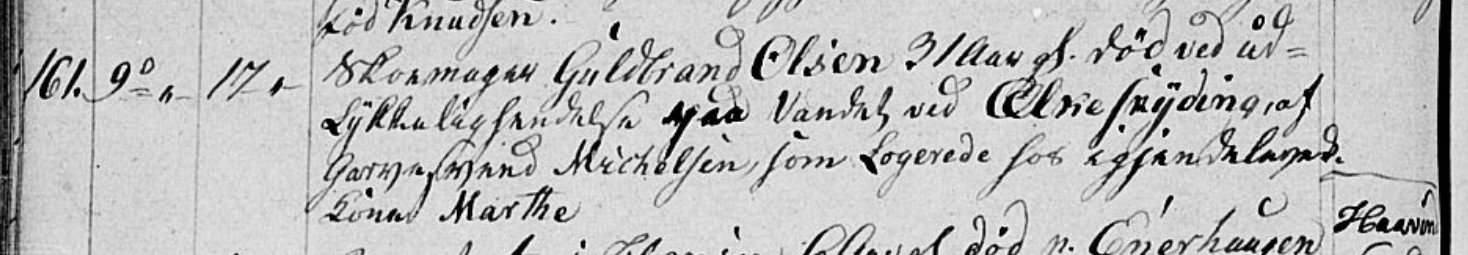 fød Knudsen.
161. 9de " 17 " Skoemager Guldbrand Olsen 31 Aar gl. død ved ud=
Lykkelighendelse paa Vandet ved Ælve skyding, af
Garversvend Michelsen, som Logerede hos igjendelaved.
Kone Marthe
Haavin
død p. Enerhaugen